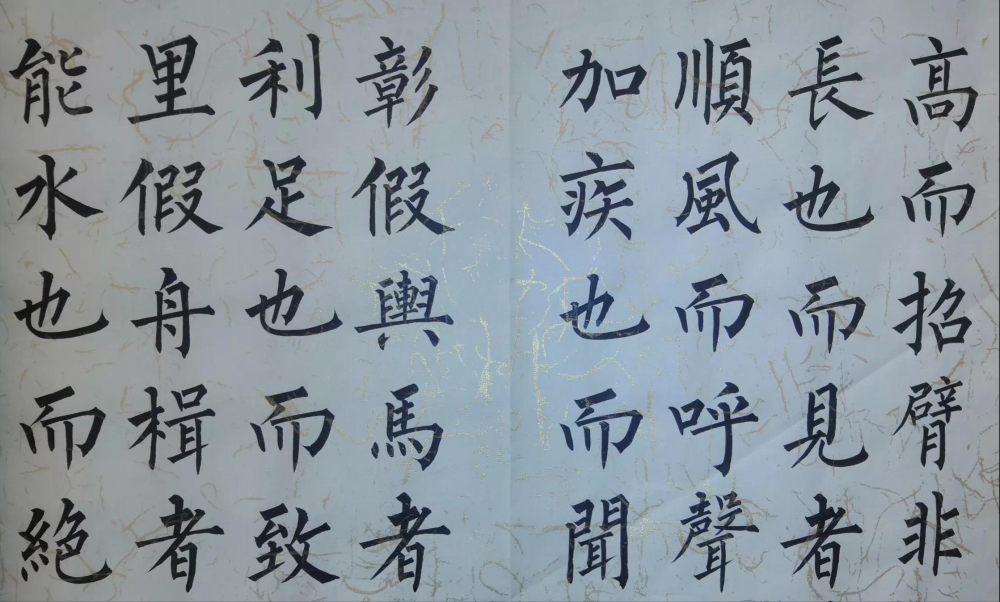 高而招臂非
長也而見者
順風而呼聲
加疾也而聞
彰假輿馬者
利足也而致
里假舟楫者
能水也而絕